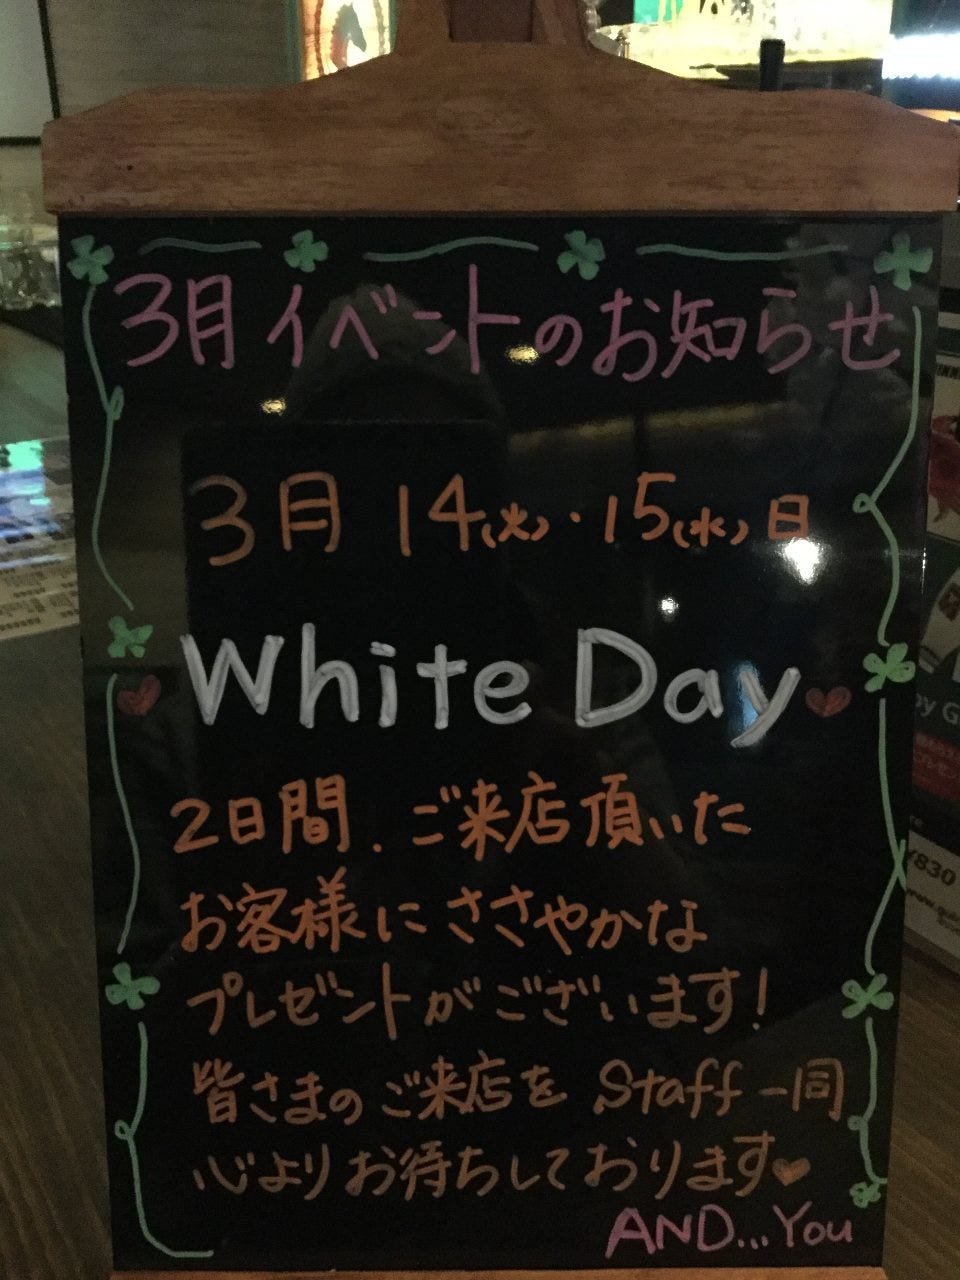 3月イベントのお知らせ
3月 14(火)・15(水)日
White Day
2日間、ご来店頂いた
お客様にささやかな
プレゼントがございます!
皆さまのご来店を Staff一同
心よりお待ちしております♥
AND...You
¥830